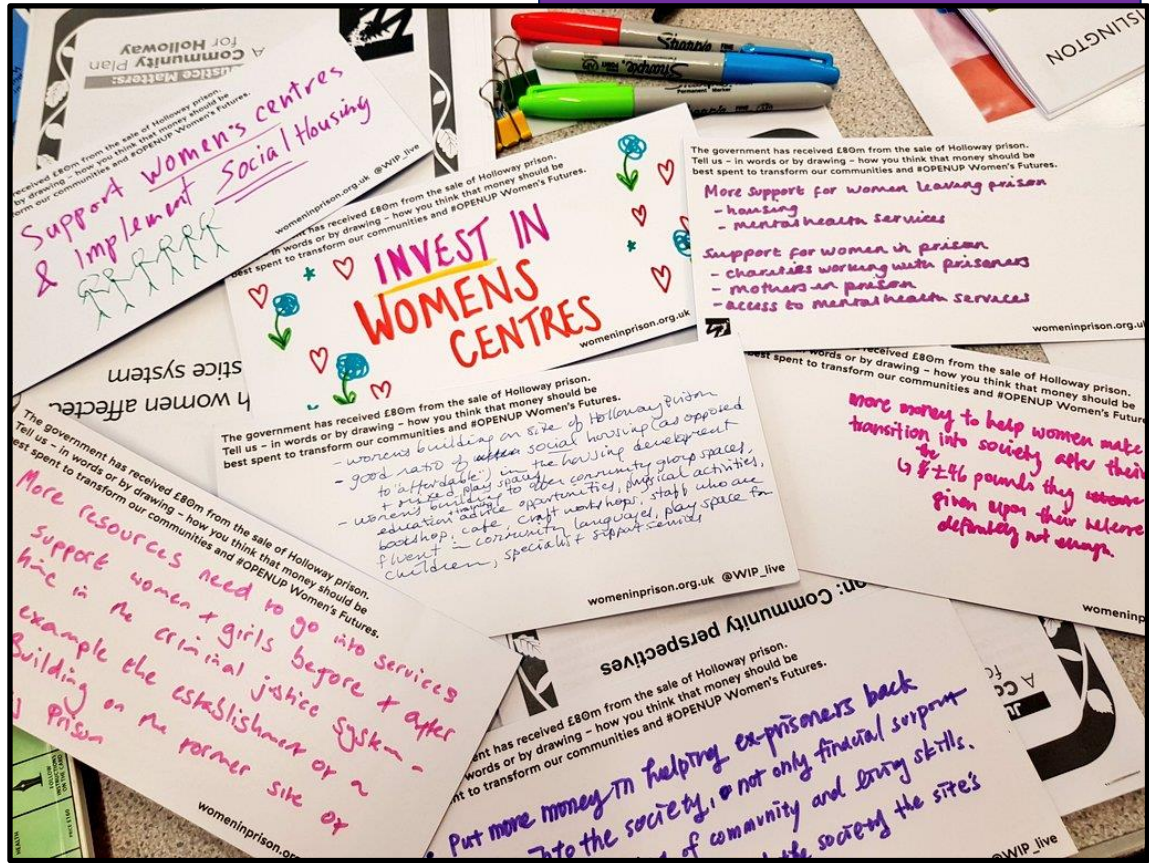 A Community Plan
for Holloway
Justice Matters:
received £80m from the sale of Holloway prison.
by drawing – how you think that money should be
form our communities and #OPENUP Women's Futures.
Support women's centres
& Implement Social Housing
womeninprison.org.uk @WIP_live
SLINGTON
Sharpie
Sharpie
Permanent Marker
has received £80m from the sale of Holloway prison.
in words or by drawing – how you think that money should be
best spent to transform our communities and #OPENUP Women's Futures.
INVEST IN
WOMENS
CENTRES
womeninprison.org.uk
The government has received £80m from the sale of Holloway prison.
Tell us – in words or by drawing – how you think that money should be
best spent to transform our communities and #OPENUP Women's Futures.
More support for women leaving prison
- housing
- mental health services
Support for women in prison
- charities working with prisoners
- mothers in prison
- access to mental health services
womeninprison.org.uk
stice system
h women affected
The government has received £80m from the sale of Holloway prison.
Tell us – in words or by drawing – how you think that money should be
best spent to transform our communities and #OPENUP Women's Futures.
- womens building on site of Holloway Prison
- good ratio of social housing (as opposed
to "affordable") in the housing development
+ mixed play spaces
- womens building to offer community group spaces,
education + training advice opportunities, physical activities,
bookshop, cafe, craft workshops, staff who are
fluent in community languages, play space for
children, specialist support services
womeninprison.org.uk @WIP_live
received £80m from the sale of Holloway prison.
words or by drawing – how you think that money should be
best spent to transform our communities and #OPENUP Women's Futures.
More money to help women make
transition into society after their
the
↳ ±46 pounds they
given upon their release
definitely not enough.
womeninp
The government has received £80m from the sale of Holloway prison.
Tell us – in words or by drawing – how you think that money should be
best spent to transform our communities and #OPENUP Women's Futures.
More resources need to go into services
support women + girls before + after
time in the criminal justice system -
example the establishment of a
Building on the former site of
prison
womeninprison.org
on: Community perspectives
A
Co
fo
Ju
ent has received £80m from the sale of Holloway prison.
words or by drawing – how you think that money should be
nt to transform our communities and #OPENUP Women's Futures.
Put more money in helping ex-prisoners back
into the society, not only finacial support
of community and living skills.
the society the site's
@WIP_live
FOLLOW
INSTRUCTIONS
ON THE CARD
HEALTH